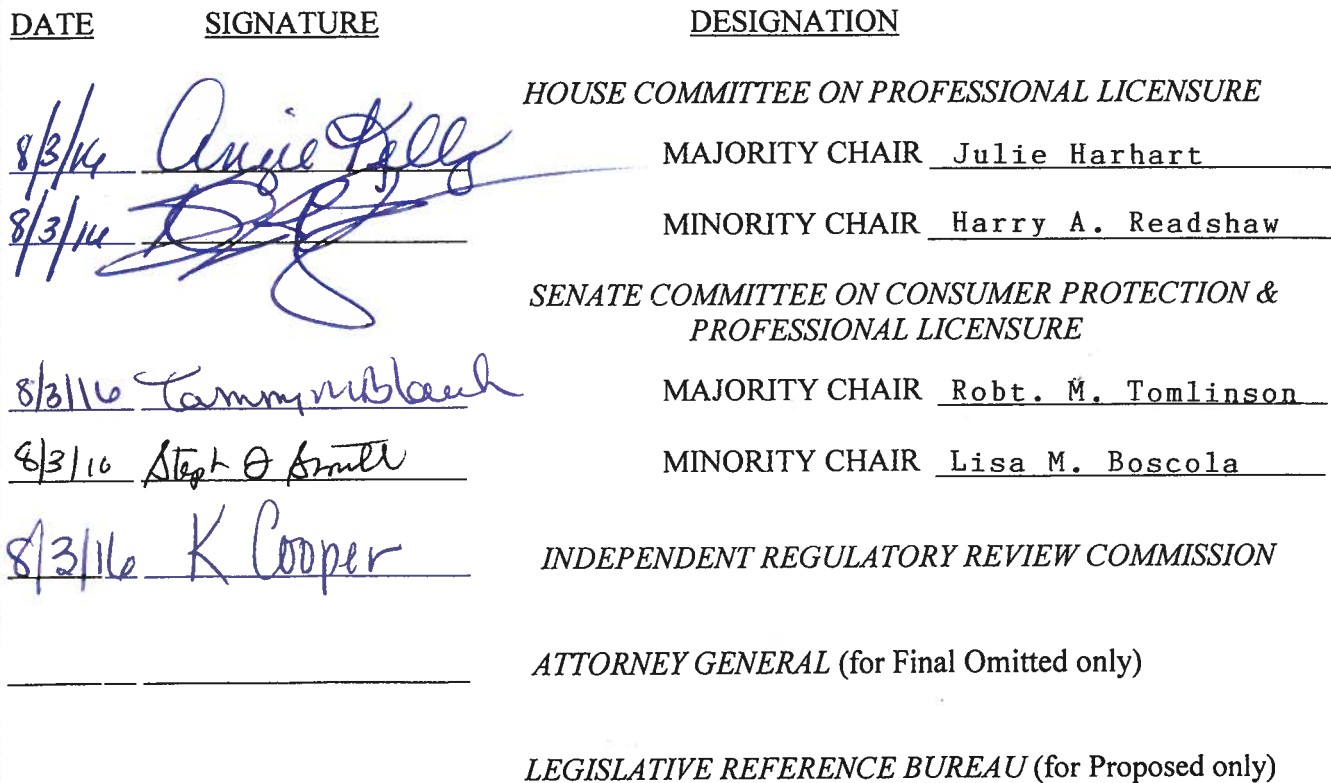 DATE SIGNATURE DESIGNATION
HOUSE COMMITTEE ON PROFESSIONAL LICENSURE
8/3/16 Angie Kelly MAJORITY CHAIR Julie Harhart
8/3/16 MINORITY CHAIR Harry A. Readshaw
SENATE COMMITTEE ON CONSUMER PROTECTION &
PROFESSIONAL LICENSURE
8/3/16 Tammy MAJORITY CHAIR Robt. M. Tomlinson
8/3/16 MINORITY CHAIR Lisa M. Boscola
8/3/16 K Cooper INDEPENDENT REGULATORY REVIEW COMMISSION
ATTORNEY GENERAL (for Final Omitted only)
LEGISLATIVE REFERENCE BUREAU (for Proposed only)